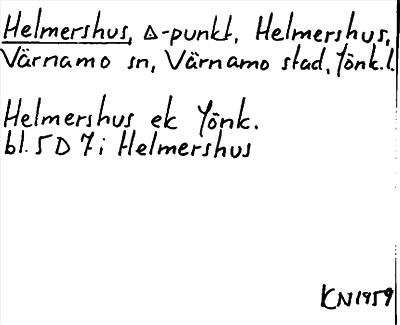 Helmershus, Δ-punkt, Helmershus,
Värnamo sn, Värnamo stad, Jönk.l.
Helmershus ek Jönk.
bl. 5 D 7 i Helmershus
KN 1959